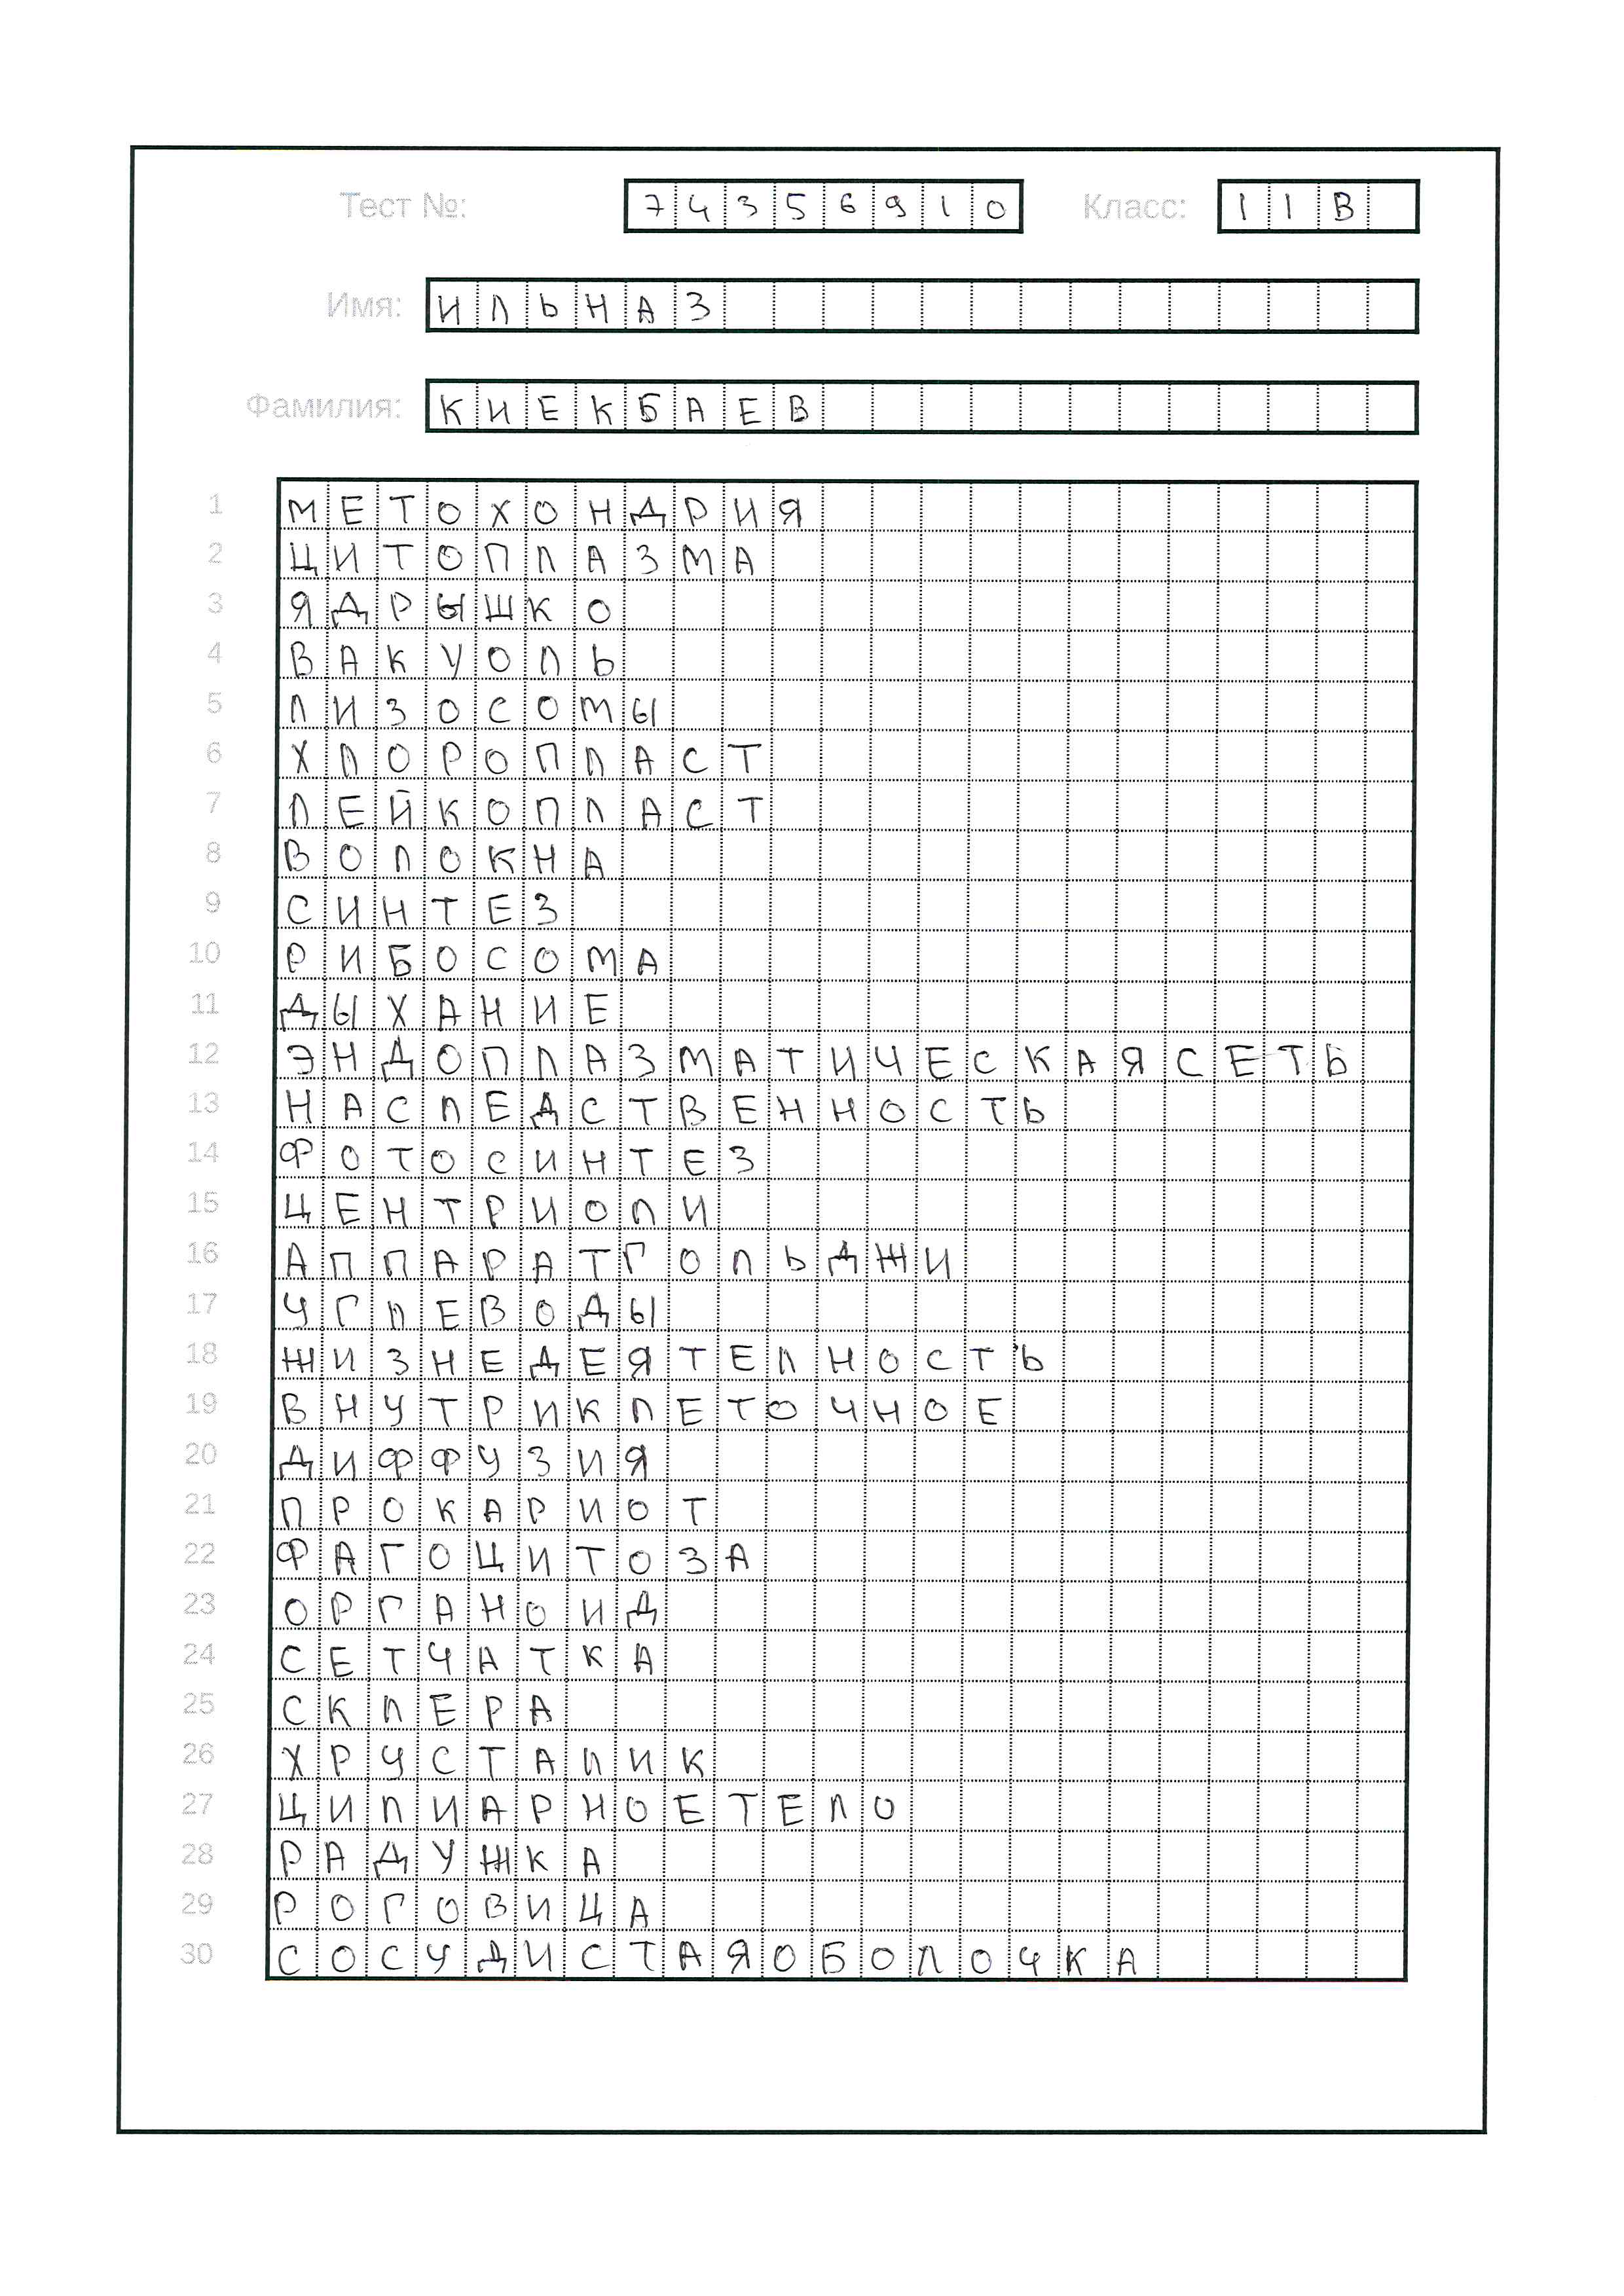 Тест №: 74356910 Класс: 11В
Имя: ИЛЬНАЗ
Фамилия: КИЕКБАЕВ
1 МЕТОХОНДРИЯ
2 ЦИТОПЛАЗМА
3 ЯДРЫШКО
4 ВАКУОЛЬ
5 ЛИЗОСОМЫ
6 ХЛОРОПЛАСТ
7 ЛЕЙКОПЛАСТ
8 ВОЛОКНА
9 СИНТЕЗ
10 РИБОСОМА
11 ДЫХАНИЕ
12 ЭНДОПЛАЗМАТИЧЕСКАЯСЕТЬ
13 НАСЛЕДСТВЕННОСТЬ
14 ФОТОСИНТЕЗ
15 ЦЕНТРИОЛИ
16 АППАРАТГОЛЬДЖИ
17 УГЛЕВОДЫ
18 ЖИЗНЕДЕЯТЕЛНОСТЬ
19 ВНУТРИКЛЕТОЧНОЕ
20 ДИФФУЗИЯ
21 ПРОКАРИОТ
22 ФАГОЦИТОЗА
23 ОРГАНОИД
24 СЕТЧАТКА
25 СКЛЕРА
26 ХРУСТАЛИК
27 ЦИЛИАРНОЕТЕЛО
28 РАДУЖКА
29 РОГОВИЦА
30 СОСУДИСТАЯОБОЛОЧКА